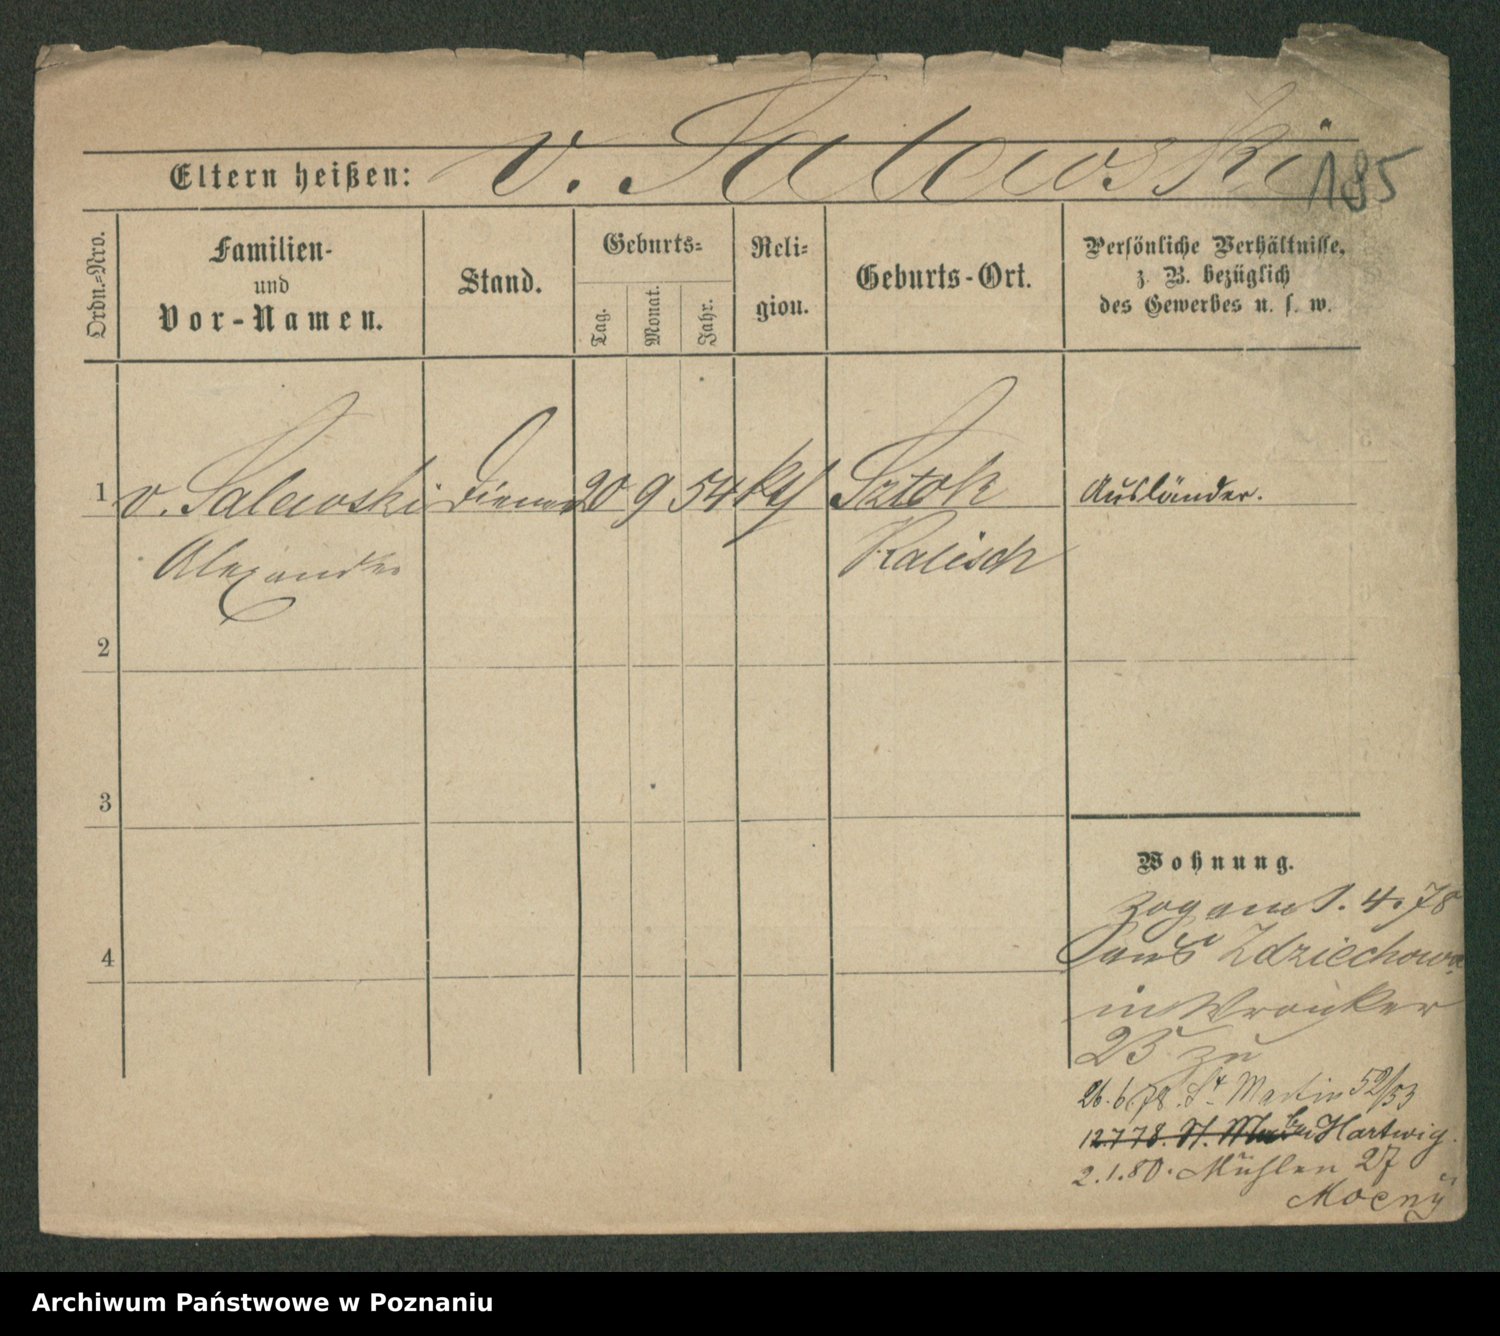 v. Salewski
185
Eltern heißen:
Ordn.=Nro.
Familien-
und
Vor-Namen.
Stand.
Geburts=
Tag.
Monat.
Jahr.
Reli=
gion.
Geburts-Ort.
Persönliche Verhältnisse,
z. B. bezüglich
des Gewerbes u. s. w.
1 v. Salewski Diener 20 9 54 kth Sztok Ausländer.
Alexander Kalisch
2
3
4
Wohnung.
zog am 1. 4. 78
aus Zdziechowa
in Wronker
25 zu
26.6.78. St. Martin 52/53
12 7 78. St. bei Hartwig.
2.1.80. Mühlen 27
Mocny
Archiwum Państwowe w Poznaniu